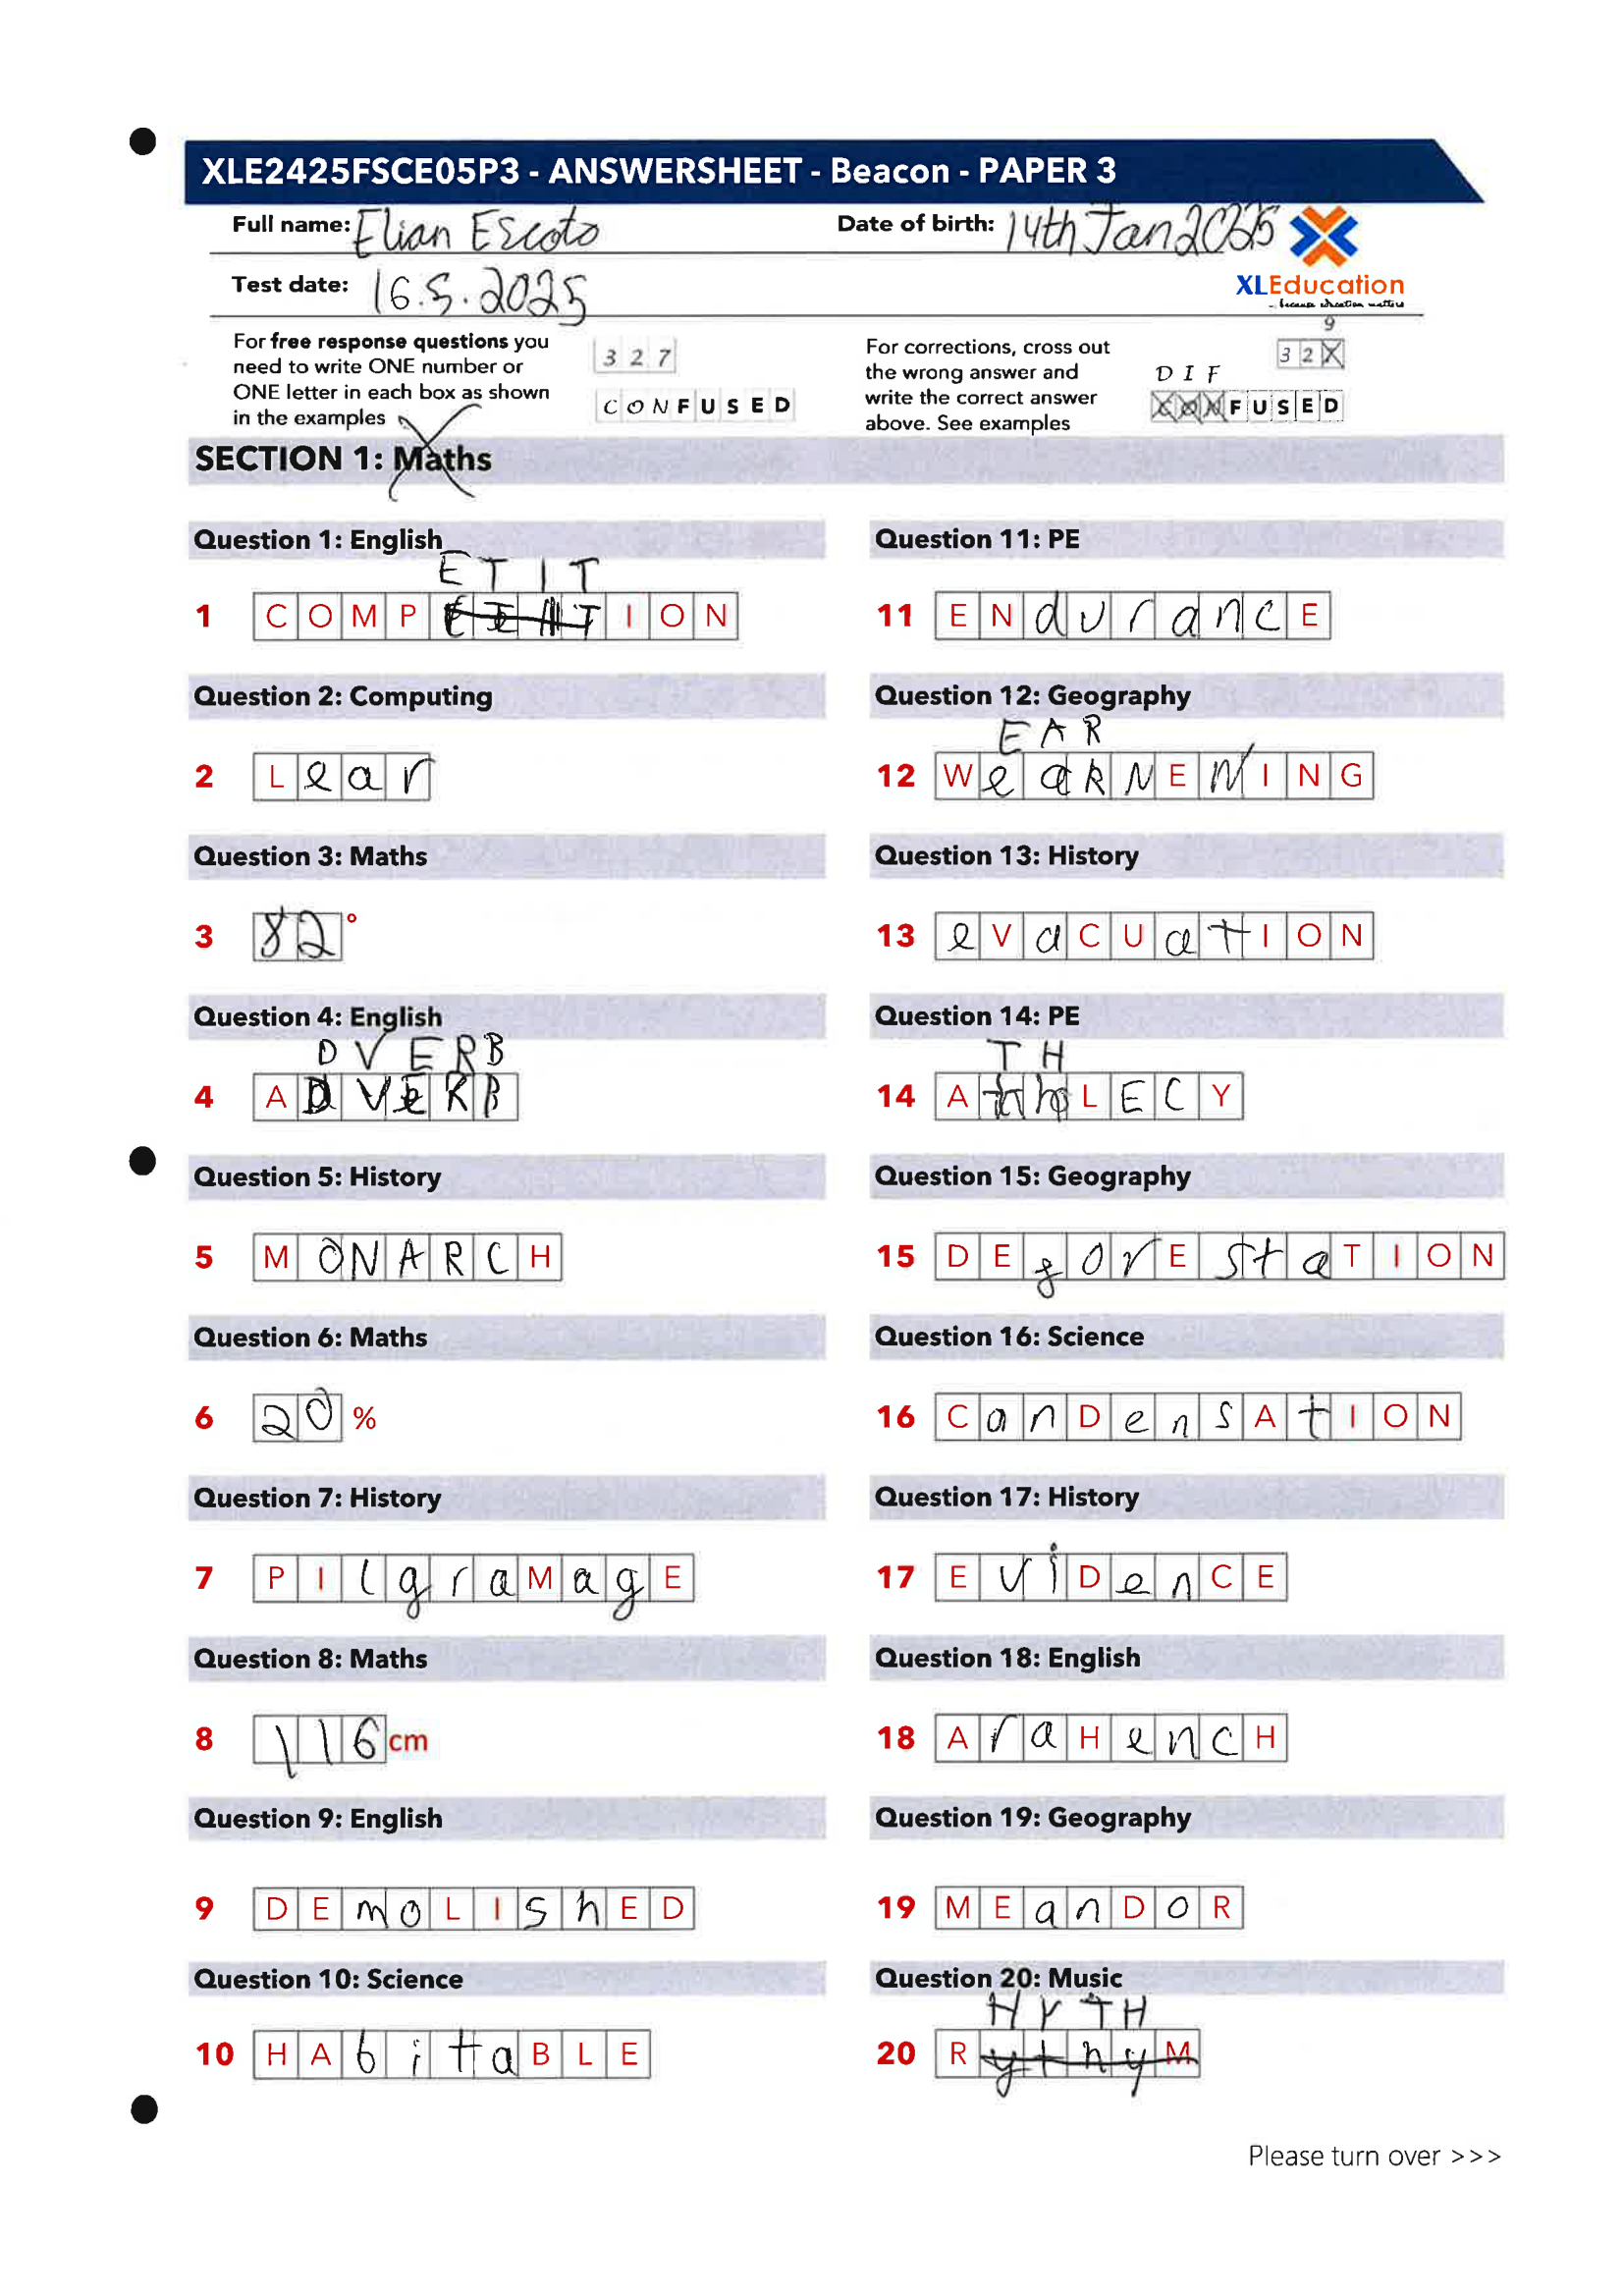 XLE2425FSCE05P3 - ANSWERSHEET - Beacon - PAPER 3
Full name: Elian Escoto
Date of birth: 14th Jan 2025
Test date: 16.5.2025
XLEducation
... because education matters
For free response questions you
need to write ONE number or
ONE letter in each box as shown
in the examples
3 2 7
C O N F U S E D
For corrections, cross out
the wrong answer and
write the correct answer
above. See examples
9
3 2 X
D I F
C O N F U S E D
SECTION 1: Maths
Question 1: English
E T I T
1 C O M P I O N
Question 2: Computing
2 L e a r
Question 3: Maths
3 8 2 °
Question 4: English
D V E R B
4 A D V E R B
Question 5: History
5 M O N A R C H
Question 6: Maths
6 2 0 %
Question 7: History
7 P I l g r a M a g E
Question 8: Maths
8 1 1 6 cm
Question 9: English
9 D E m o L I s h E D
Question 10: Science
10 H A b i t a B L E
Question 11: PE
11 E N d u r a n c E
Question 12: Geography
E A R
12 W e a k N E N I N G
Question 13: History
13 e V a C U a t I O N
Question 14: PE
T H
14 A t h L E C Y
Question 15: Geography
15 D E f o r E s t a T I O N
Question 16: Science
16 C a n D e n s A t I O N
Question 17: History
17 E v i D e n C E
Question 18: English
18 A r a H e n c H
Question 19: Geography
19 M E a n D o R
Question 20: Music
H Y T H
20 R y t h y M
Please turn over >>>